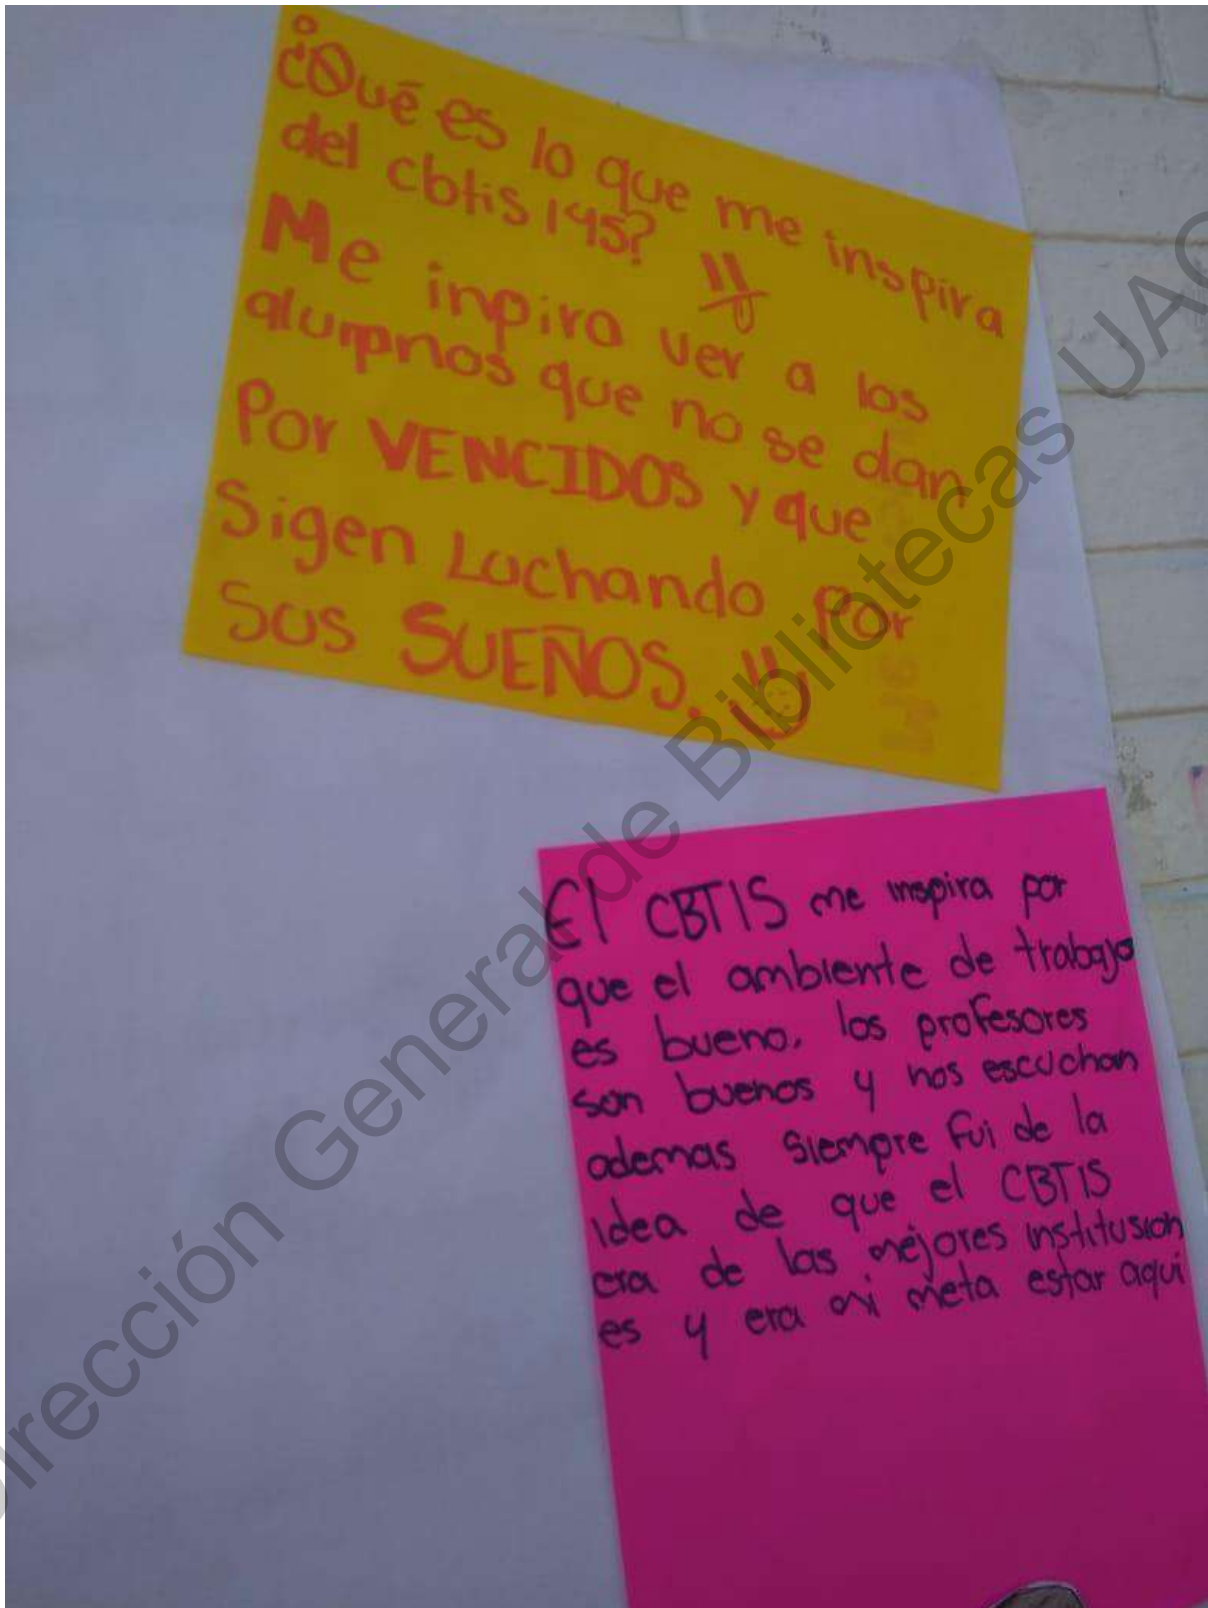 ¿Qué es lo que me inspira
del cbtis 145?
Me inpira ver a los
alumnos que no se dan
Por VENCIDOS y que
Sigen Luchando Por
Sus SUEÑOS.
El CBTIS me inspira por
que el ambiente de trabajo
es bueno. los profesores
son buenos y nos escuchan
ademas siempre fui de la
idea de que el CBTIS
era de las mejores institusion
es y era mi meta estar aqui
Dirección General de Bibliotecas UAQ